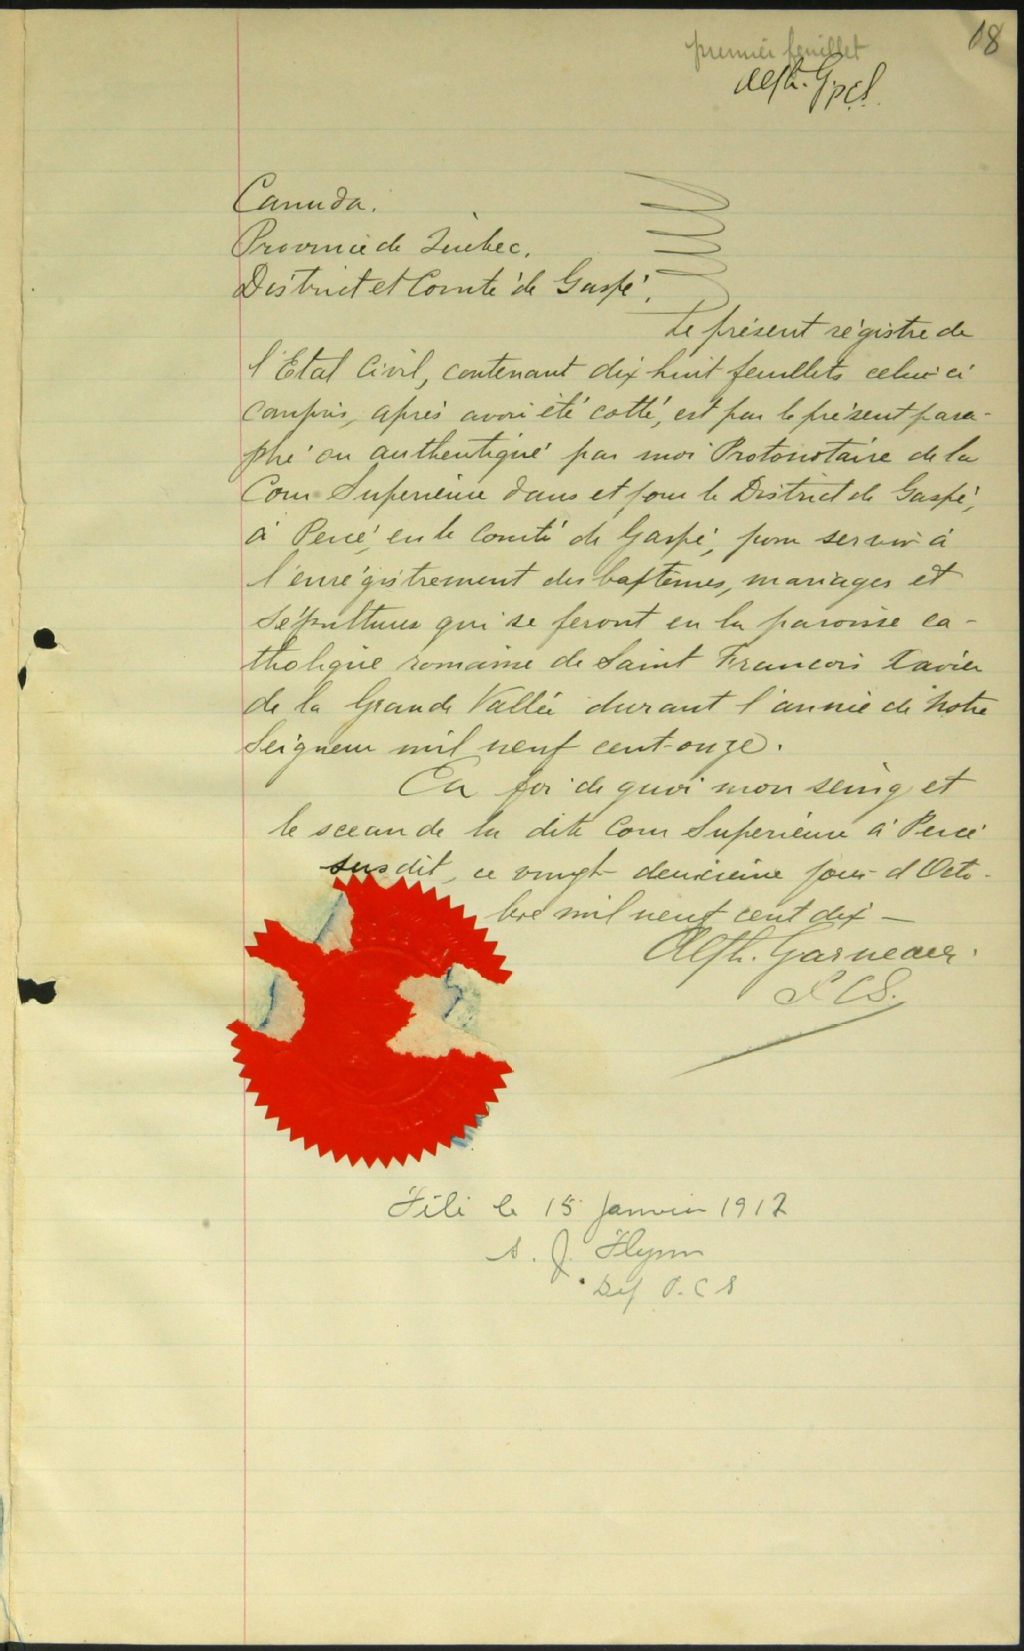 premier feuillet
18
Alph. G. pcs.
Canada.
Province de Québec.
District et Comté de Gaspé.
Le présent régistre de
l'Etat Civil, contenant dix huit feuillets celui ci
compris, après avoir été cotté, est par le présent para-
phé ou authentiqué par moi Protonotaire de la
Cour Superieure dans et pour le District de Gaspé,
à Percé, en le Comté de Gaspé, pour servir à
l'enrégistrement des baptêmes, mariages et
sépultures qui se feront en la paroisse ca-
tholique romaine de Saint Francois Xavier
de la Grande Vallée durant l'année de Notre
Seigneur mil neuf cent-onze.
En foi de quoi mon seing et
le sceau de la dite Cour Superieure à Percé
susdit, ce vingt-deuxieme jour d'Octo-
bre mil neuf cent dix —
Alph. Garneau.
P.C.S.
Filé le 15 janvier 1912
S. J. Flynn
Dep P.C.S